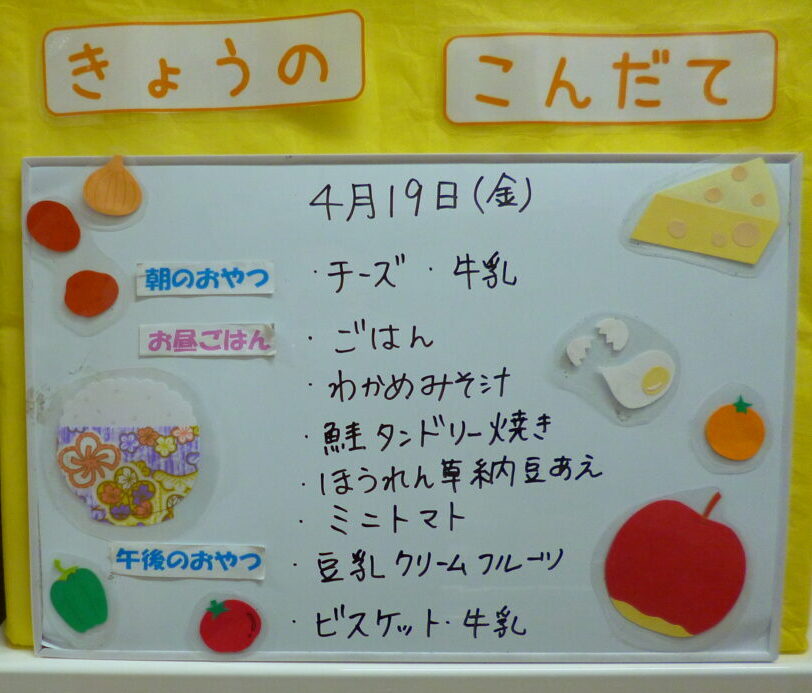 きょうの こんだて
4月19日(金)
朝のおやつ ・チーズ ・ 牛乳
お昼ごはん ・ ごはん
・わかめみそ汁
・鮭タンドリー焼き
・ほうれん草納豆あえ
・ミニトマト
午後のおやつ ・豆乳クリームフルーツ
・ビスケット・牛乳